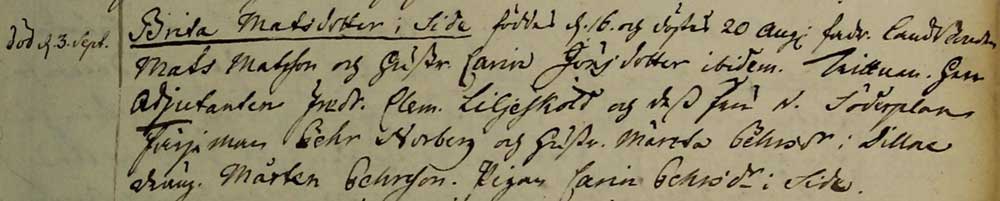 död d. 3. Sept.
Brita Matsdotter i Side föddes d. 16. och döptes 20 Aug. fadr. Landbonden
Mats Matsson och Hustr. Carin Jönsdotter ibidem. Vittnen. Herr
Adjutanten Clem. Liljesköld och dess fru S. Söderplan
Pehr Norberg och Hustr. Märeta Pehrsdr i
dräng. Mårten Pehrsson. Pigan Carin Pehrsdr i Side.